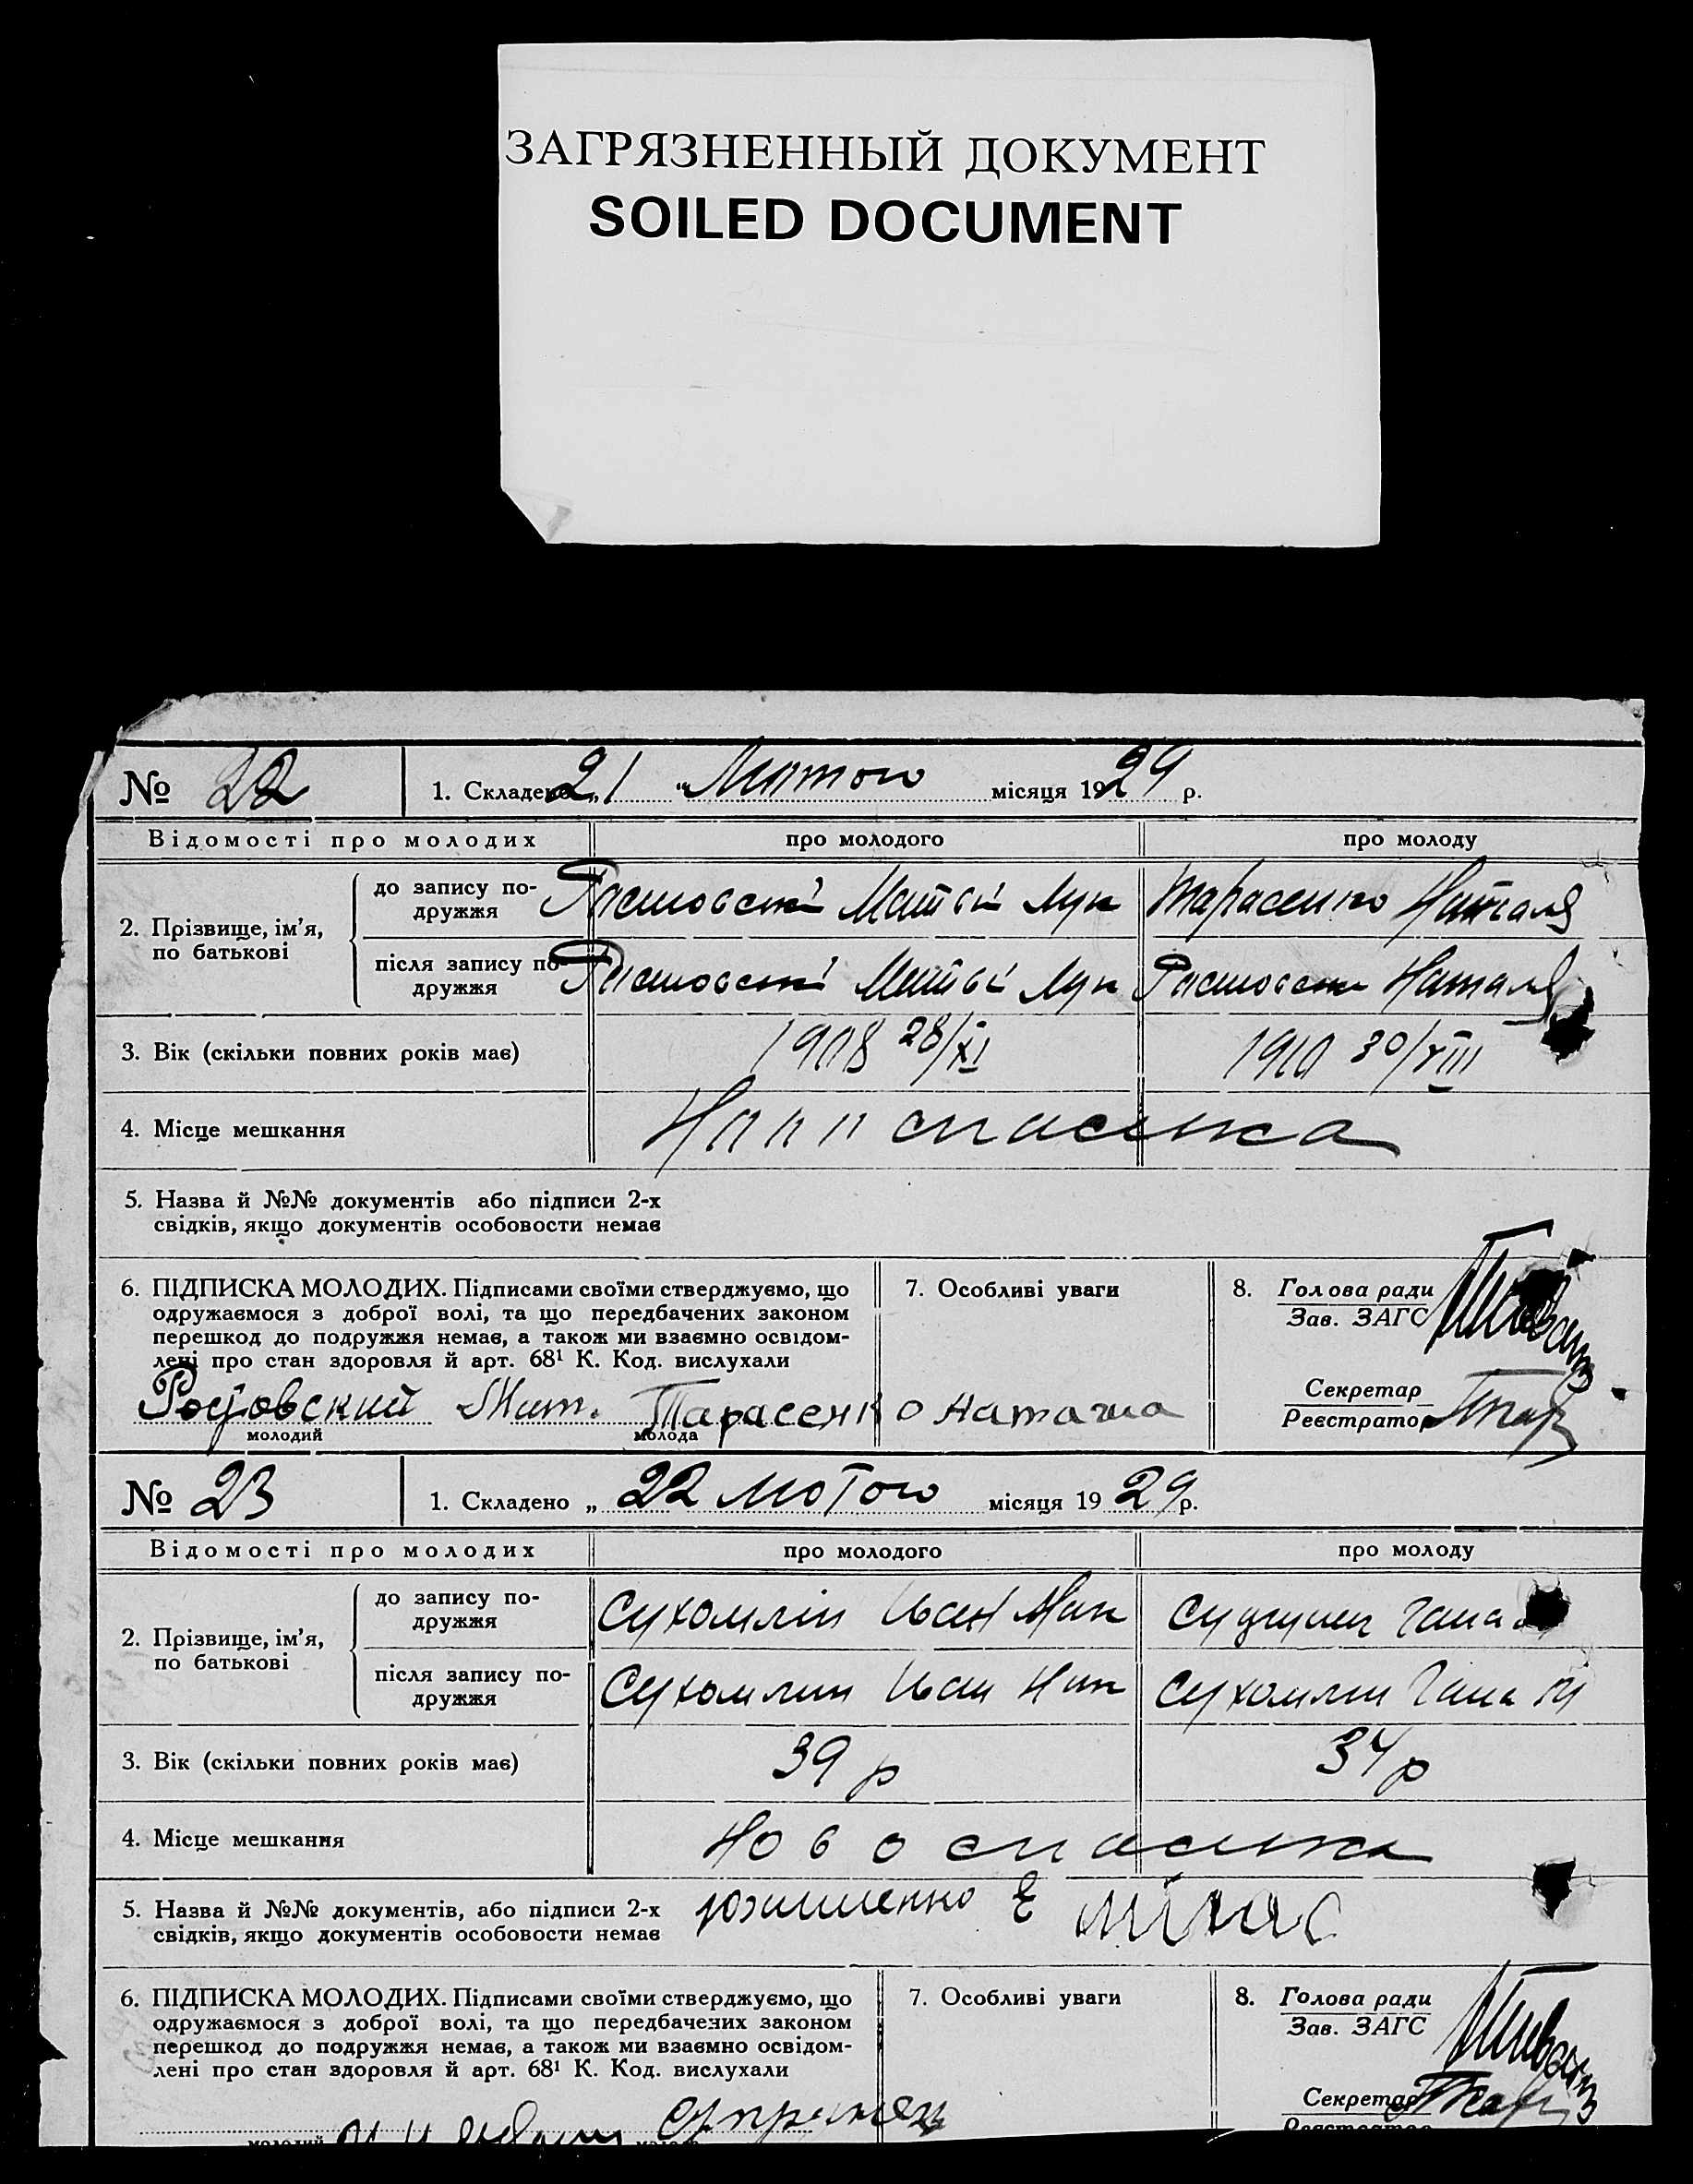 ЗАГРЯЗНЕННЫЙ ДОКУМЕНТ
SOILED DOCUMENT
№ 22
1. Складено „21“ Лютого місяця 1929 р.
Відомості про молодих
про молодого
про молоду
2. Прізвище, ім’я, по батькові
до запису по-
дружжя
Тарасенко Наталя
після запису по-
дружжя
Наталя
3. Вік (скільки повних років має)
1908 28/XI
1910 30/VIII
4. Місце мешкання
5. Назва й №№ документів або підписи 2-х
свідків, якщо документів особовости немає
6. ПІДПИСКА МОЛОДИХ. Підписами своїми стверджуємо, що
одружаємося з доброї волі, та що передбачених законом
перешкод до подружжя немає, а також ми взаємно освідом-
лені про стан здоровля й арт. 68¹ К. Код. вислухали
7. Особливі уваги
8. Голова ради
Зав. ЗАГС
Секретар
Реєстратор
Тарасенко Наташа
молодий
молода
№ 23
1. Складено „ 22 лютого місяця 1929 р.
Відомості про молодих
про молодого
про молоду
2. Прізвище, ім’я,
по батькові
до запису по-
дружжя
Сухомлін Іван
Гана
після запису по-
дружжя
Сухомлин Иван
Сухомлин Гана
3. Вік (скільки повних років має)
39 р
34 р
4. Місце мешкання
Новоспасівка
5. Назва й №№ документів, або підписи 2-х
свідків, якщо документів особовости немає
6. ПІДПИСКА МОЛОДИХ. Підписами своїми стверджуємо, що
одружаємося з доброї волі, та що передбачених законом
перешкод до подружжя немає, а також ми взаємно освідом-
лені про стан здоровля й арт. 68¹ К. Код. вислухали
7. Особливі уваги
8. Голова ради
Зав. ЗАГС
Секретар